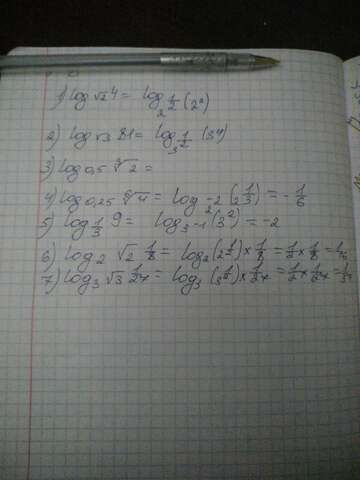 1) log √2 4 = log 2^(1/2) (2²)
2) log √3 81 = log 3^(1/2) (3⁴)
3) log 0,5 ∛2 =
4) log 0,25 ∛4 = log 2^(-2) (2^(1/3)) = -1/6
5) log 1/3 9 = log 3^(-1) (3²) = -2
6) log 2 √2 1/8 = log 2 (2^(1/2)) × 1/8 = 1/2 × 1/8 = 1/16
7) log 3 √3 1/27 = log 3 (3^(1/2)) × 1/27 = 1/2 × 1/27 =